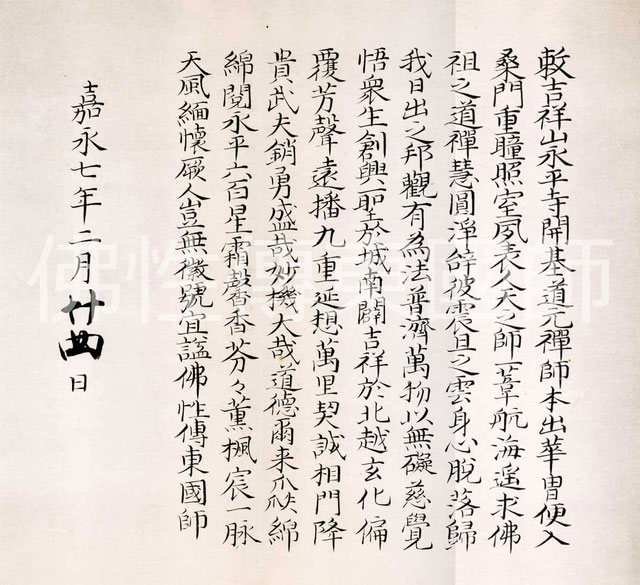 敕吉祥山永平寺開基道元禪師本出華冑便入
桑門重瞳照室夙表人天之師一葦航海遥求佛
祖之道禪慧圓淨辞彼震旦之雲身心脱落歸
我日出之邦觀有為法普濟萬物以無礙慈覺
悟衆生創興聖於城南闢吉祥於北越玄化偏
覆芳聲遠播九重延想萬里契誠相門降
貴武夫銷勇盛哉妙機大哉道德爾来瓜瓞綿
綿閲永平六百星霜馨香芬々薫楓宸一脉
天風緬懷厥人豈無徽號宜謚佛性傳東國師
嘉永七年二月廿四日
佛性傳東國師